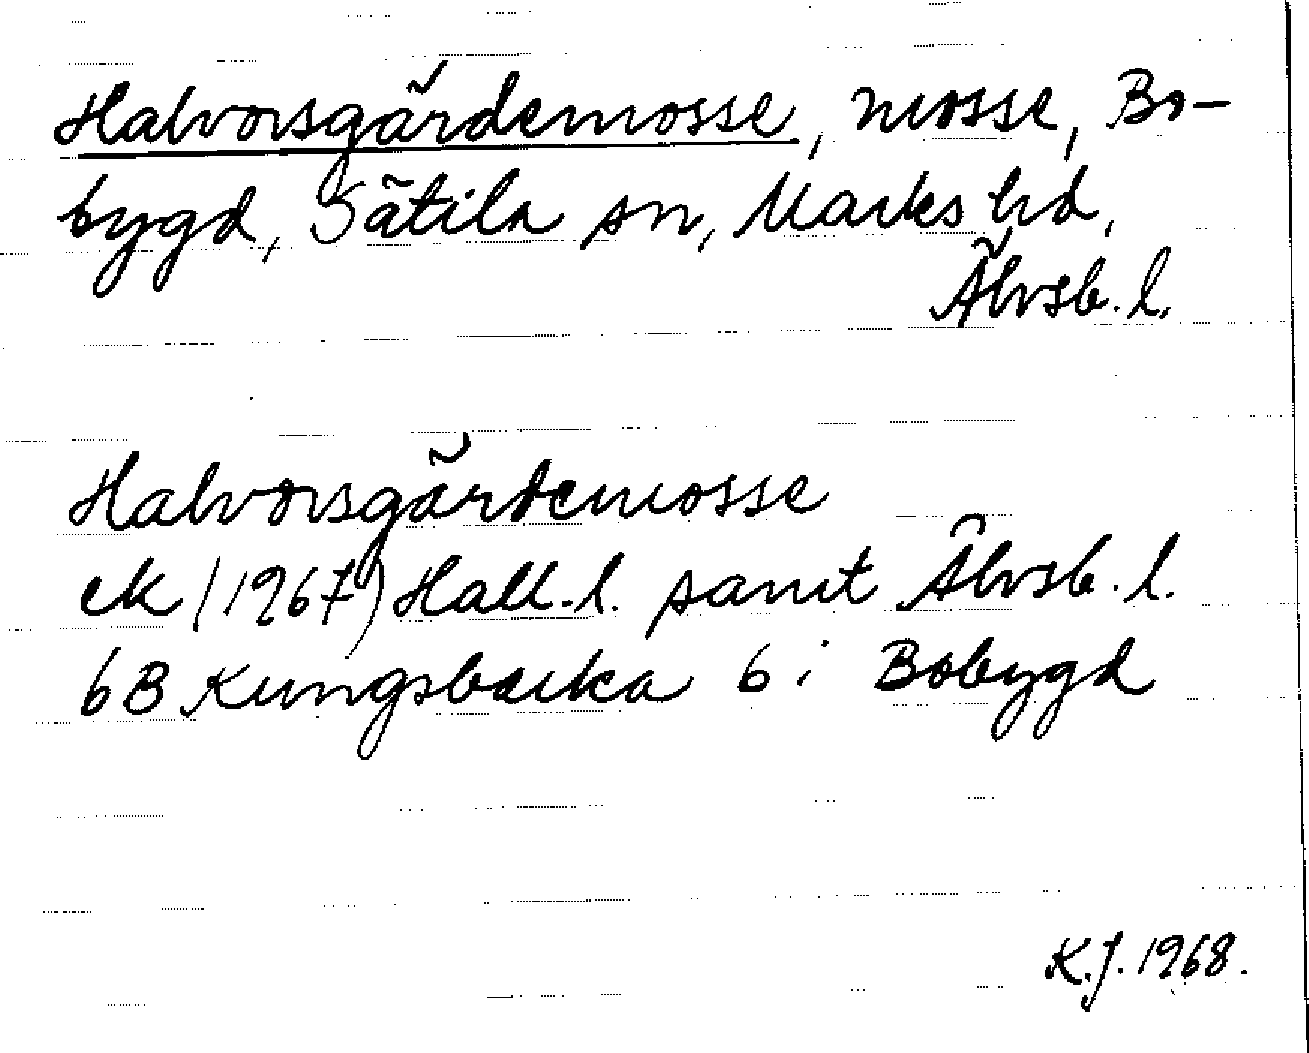 Halvorsgärdemosse, mosse, Bo-
bygd, Sätila sn, Marks hd,
Älvsb. l.
Halvorsgärdemosse
ek (1967) Hall. l. samt Älvsb. l.
6B Kungsbacka 6 i Bobygd
K.J. 1968.